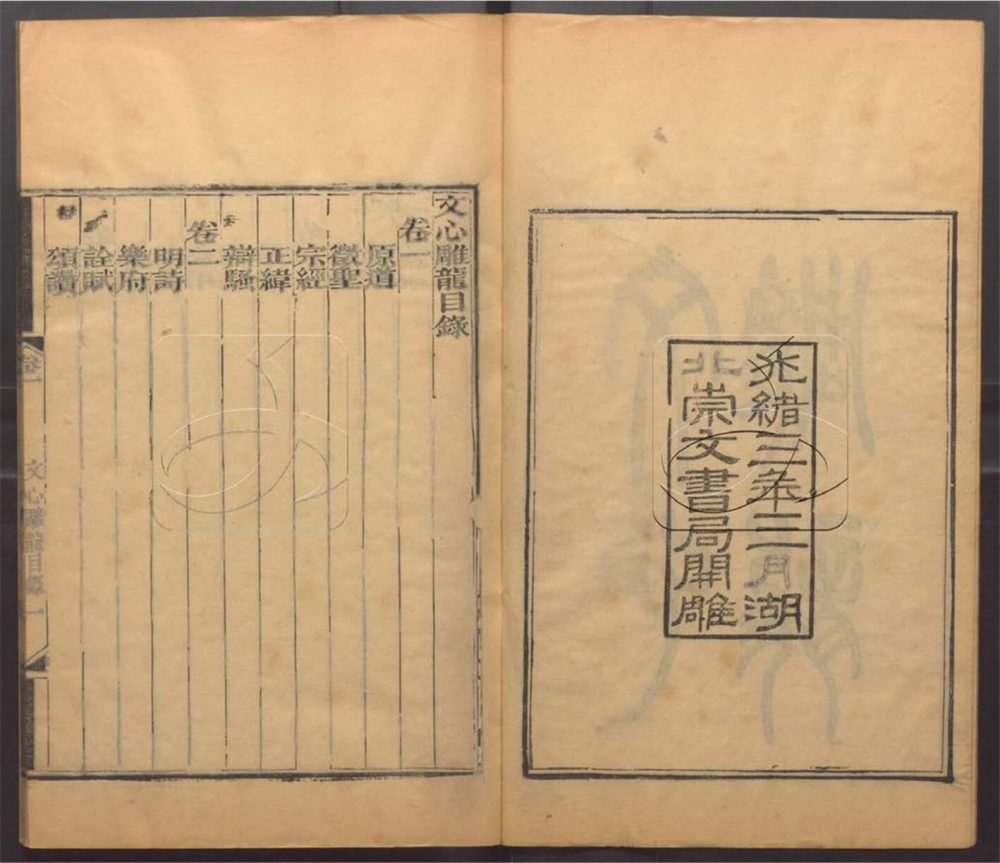 光緒三年三月湖
北崇文書局開雕
文心雕龍目錄
卷一
原道
徵聖
宗經
正緯
辯騷
卷二
明詩
樂府
詮賦
頌讚
卷一
文心雕龍目錄
一